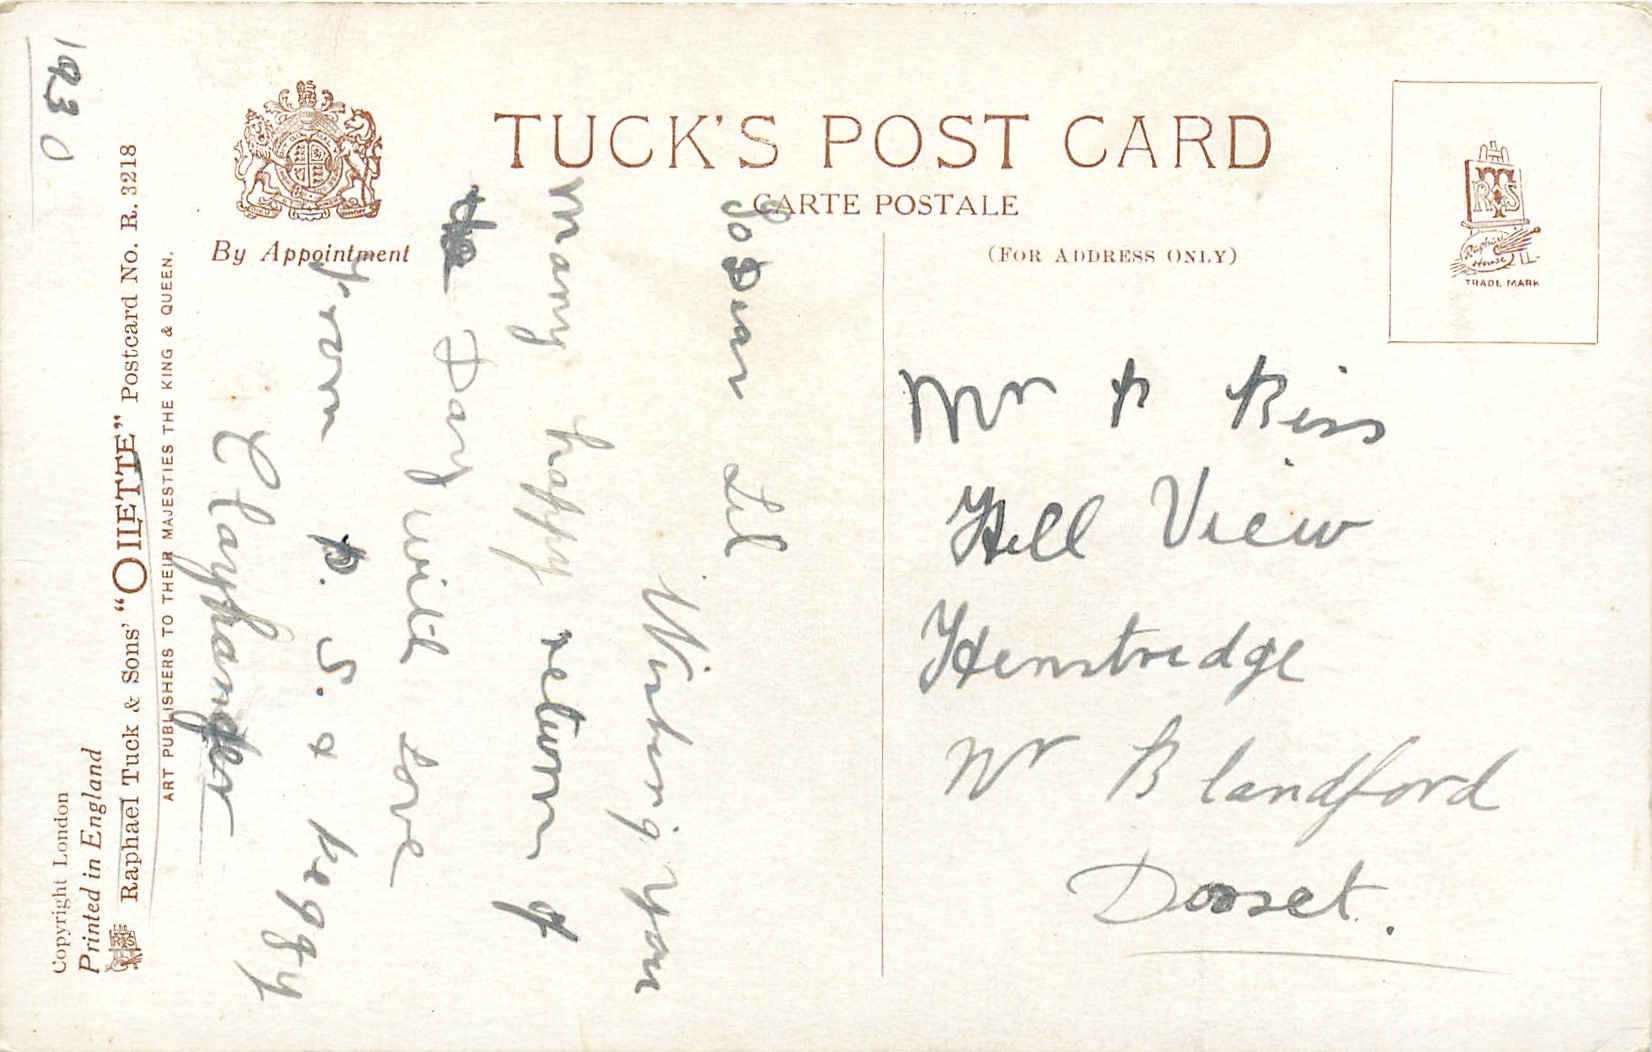 TUCK'S POST CARD
CARTE POSTALE
By Appointment
(FOR ADDRESS ONLY)
RTS
Raphael House
TRADE MARK
To Dear Lil
Wishing you
many happy return of
the Day with love
from P. S. & Peggy
Clayhanger
Mr P Biss
Hill View
Henstridge
Nr Blandford
Dorset.
1930
Copyright London
Printed in England
Raphael Tuck & Sons' "OILETTE" Postcard No. R. 3218
ART PUBLISHERS TO THEIR MAJESTIES THE KING & QUEEN.